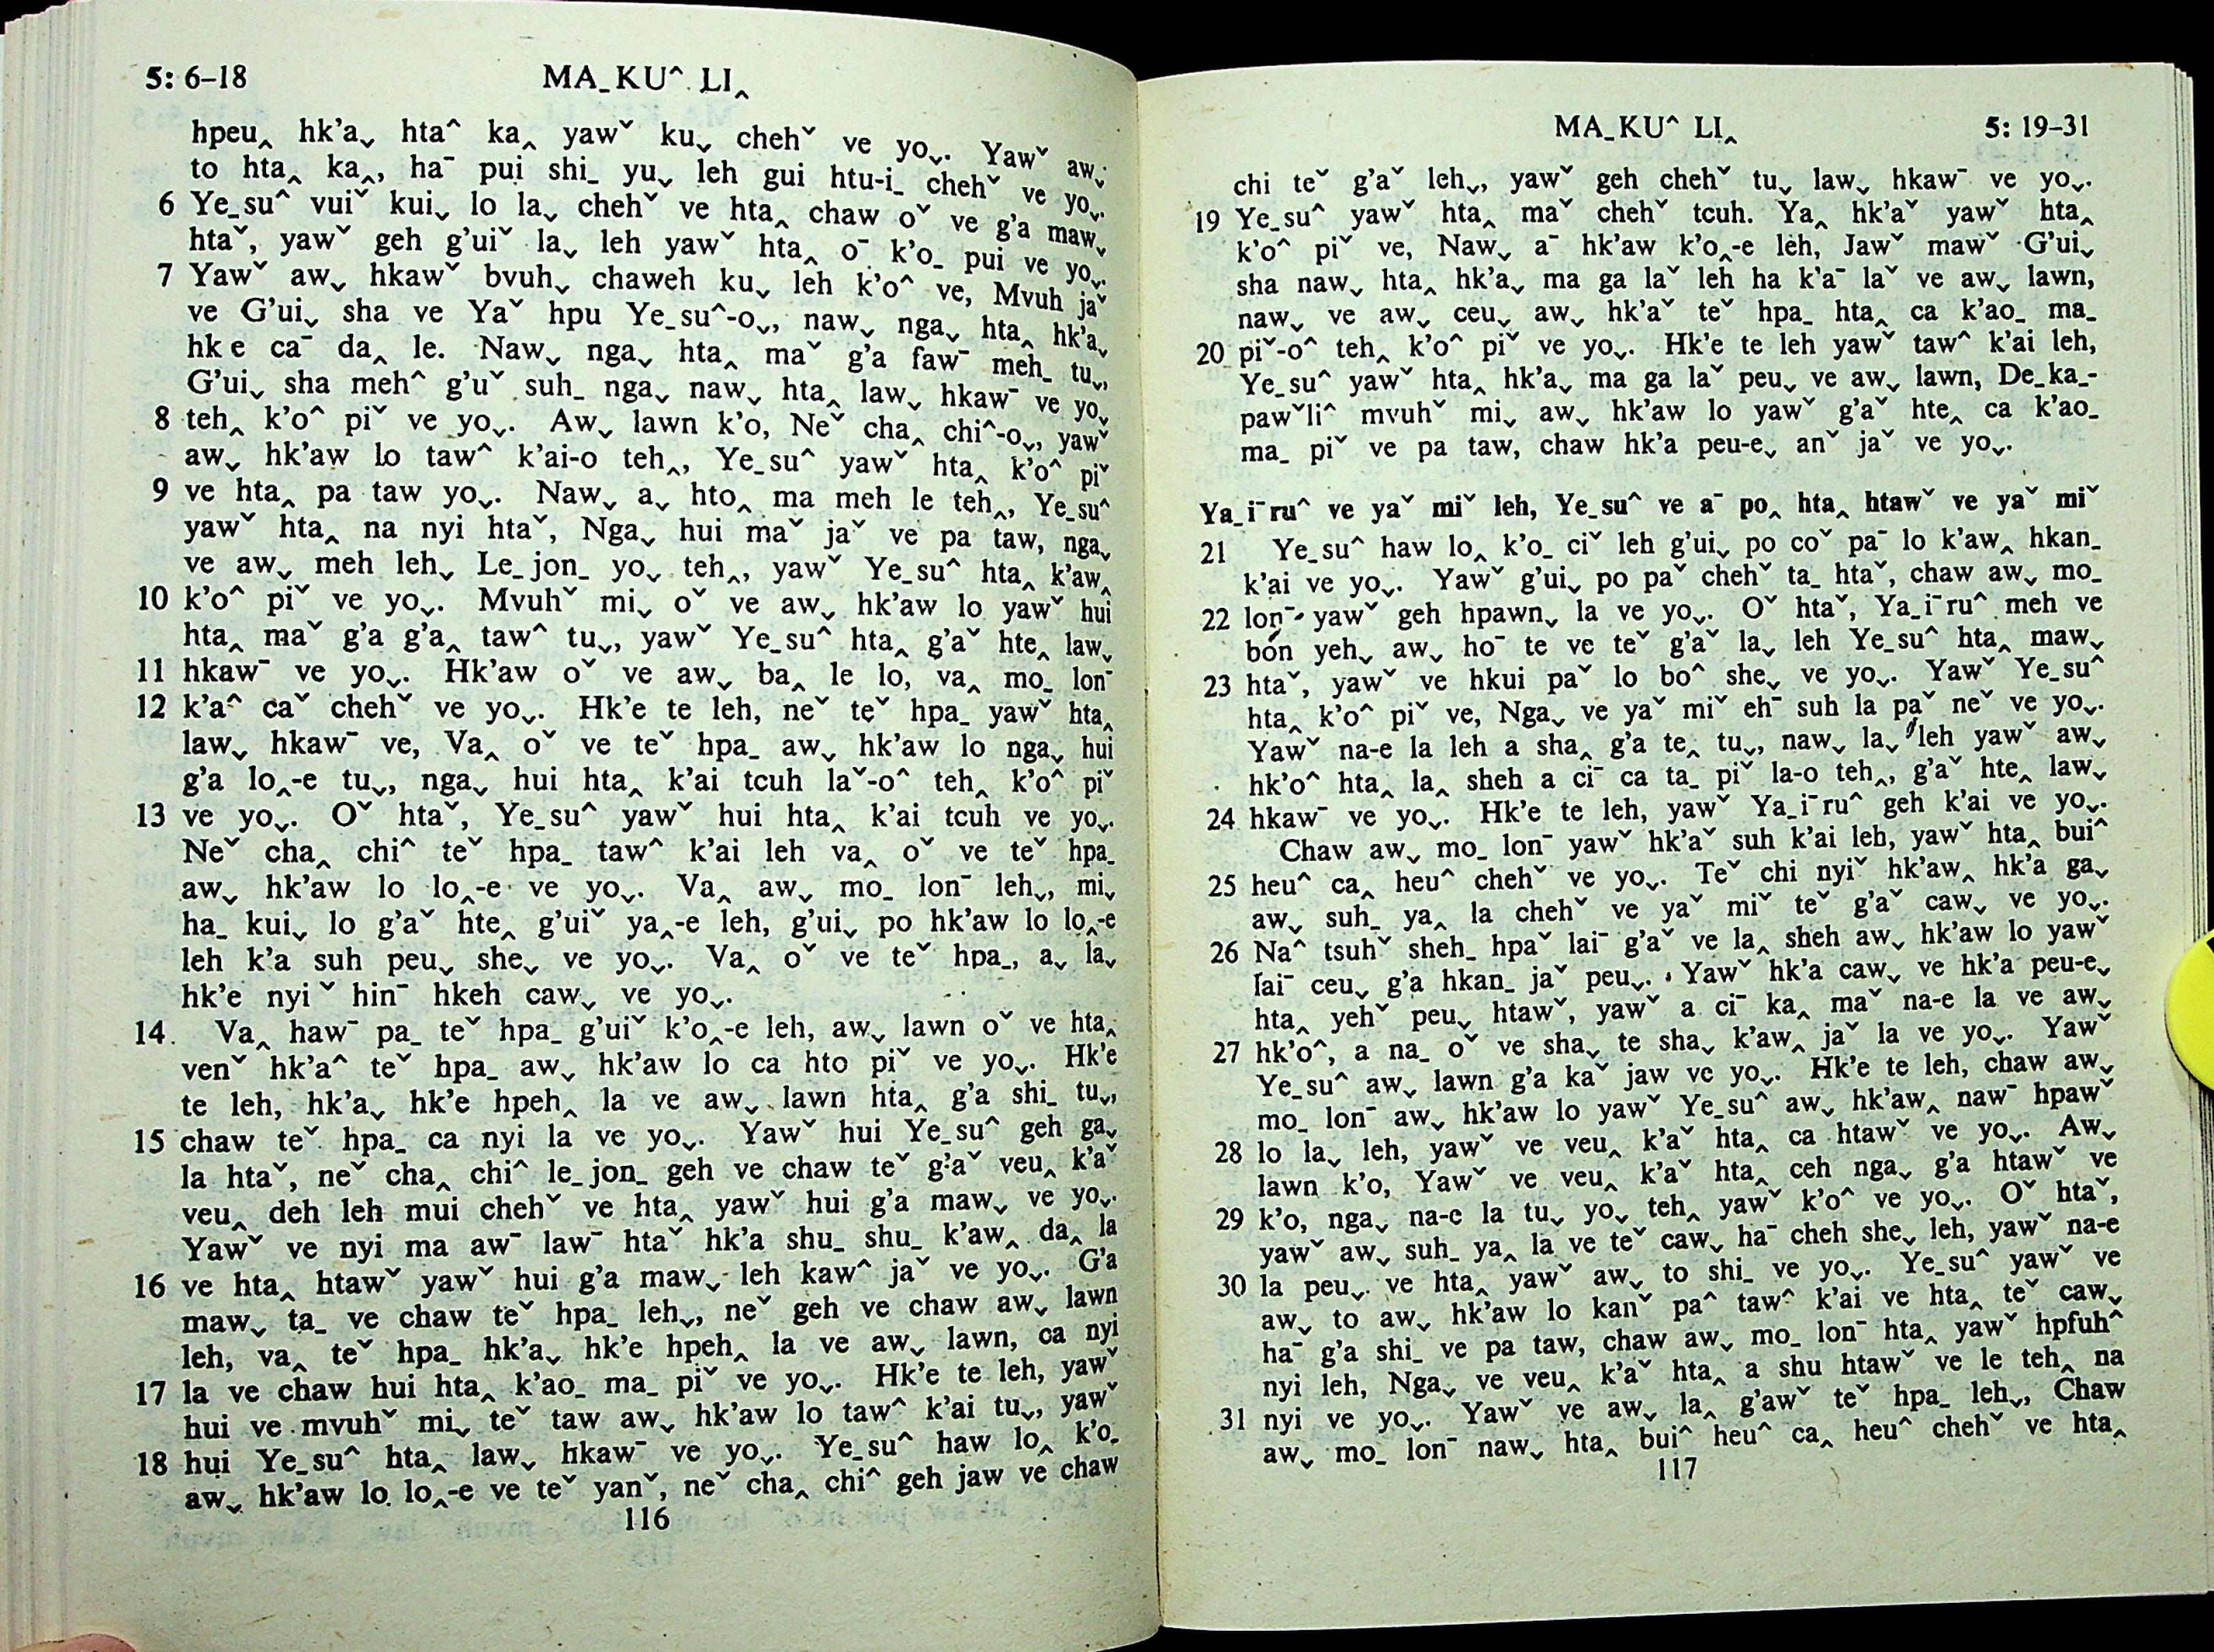 5: 6–18 MA_KU^ LI‸
hpeu‸ hk’aˬ hta^ ka‸ yawˇ kuˬ chehˇ ve yoˬ. Yawˇ awˬ
to hta‸ ka‸, ha¯ pui shi_ yuˬ leh gui htu-i_ chehˇ ve yoˬ.
6 Ye_su^ vuiˇ kuiˬ lo laˬ chehˇ ve hta‸ chaw oˇ ve g’a mawˬ
htaˇ, yawˇ geh g’uiˇ laˬ leh yawˇ hta‸ o¯ k’o_ pui ve yoˬ.
7 Yawˇ awˬ hkawˇ bvuhˬ chaweh kuˬ leh k’o^ ve, Mvuh jaˇ
ve G’uiˬ sha ve Yaˇ hpu Ye_su^-oˬ, nawˬ ngaˬ hta‸ hk’aˬ
hk e ca¯ da‸ le. Nawˬ ngaˬ hta‸ maˇ g’a faw¯ meh_ tuˬ,
G’uiˬ sha meh^ g’uˇ suh_ ngaˬ nawˬ hta‸ lawˬ hkaw¯ ve yoˬ
8 teh‸ k’o^ piˇ ve yoˬ. Awˬ lawn k’o, Neˇ cha‸ chi^-oˬ, yawˇ
awˬ hk’aw lo taw^ k’ai-o teh‸, Ye_su^ yawˇ hta‸ k’o^ piˇ
9 ve hta‸ pa taw yoˬ. Nawˬ aˬ hto‸ ma meh le teh‸, Ye_su^
yawˇ hta‸ na nyi htaˇ, Ngaˬ hui maˇ jaˇ ve pa taw, ngaˬ
ve awˬ meh lehˬ Le_jon_ yoˬ teh‸, yawˇ Ye_su^ hta‸ k’aw‸
10 k’o^ piˇ ve yoˬ. Mvuhˇ miˬ oˇ ve awˬ hk’aw lo yawˇ hui
hta‸ maˇ g’a g’a‸ taw^ tuˬ, yawˇ Ye_su^ hta‸ g’aˇ hte‸ lawˬ
11 hkaw¯ ve yoˬ. Hk’aw oˇ ve awˬ ba‸ le lo, va‸ mo_ lon¯
12 k’a^ caˇ chehˇ ve yoˬ. Hk’e te leh, neˇ teˇ hpa_ yawˇ hta‸
lawˬ hkaw¯ ve, Va‸ oˇ ve teˇ hpa_ awˬ hk’aw lo ngaˬ hui
g’a lo‸-e tuˬ, ngaˬ hui hta‸ k’ai tcuh laˇ-o^ teh‸ k’o^ piˇ
13 ve yoˬ. Oˇ htaˇ, Ye_su^ yawˇ hui hta‸ k’ai tcuh ve yoˬ.
Neˇ cha‸ chi^ teˇ hpa_ taw^ k’ai leh va‸ oˇ ve teˇ hpa_
awˬ hk’aw lo lo‸-e ve yoˬ. Va‸ awˬ mo_ lon¯ lehˬ, miˬ
ha_ kuiˬ lo g’aˇ hte‸ g’uiˇ ya‸-e leh, g’uiˬ po hk’aw lo lo‸-e
leh k’a suh peuˬ sheˬ ve yoˬ. Va‸ oˇ ve teˇ hpa_, aˬ laˬ
hk’e nyiˇ hin¯ hkeh cawˬ ve yoˬ.
14. Va‸ haw¯ pa_ teˇ hpa_ g’uiˇ k’o‸-e leh, awˬ lawn oˇ ve hta‸
venˇ hk’a^ teˇ hpa_ awˬ hk’aw lo ca hto piˇ ve yoˬ. Hk’e
te leh, hk’aˬ hk’e hpeh‸ la ve awˬ lawn hta‸ g’a shi_ tuˬ,
15 chaw teˇ hpa_ ca nyi la ve yoˬ. Yawˇ hui Ye_su^ geh gaˬ
la htaˇ, neˇ cha‸ chi^ le_jon_ geh ve chaw teˇ g’aˇ veu‸ k’aˇ
veu‸ deh leh mui chehˇ ve hta‸ yawˇ hui g’a mawˬ ve yoˬ.
Yawˇ ve nyi ma aw¯ law¯ htaˇ hk’a shu_ shu_ k’aw‸ da‸ la
16 ve hta‸ htawˇ yawˇ hui g’a mawˬ leh kaw^ jaˇ ve yoˬ. G’a
mawˬ ta_ ve chaw teˇ hpa_ lehˬ, neˇ geh ve chaw awˬ lawn
leh, va‸ teˇ hpa_ hk’aˬ hk’e hpeh‸ la ve awˬ lawn, ca nyi
17 la ve chaw hui hta‸ k’ao_ ma_ piˇ ve yoˬ. Hk’e te leh, yawˇ
hui ve mvuhˇ miˬ teˇ taw awˬ hk’aw lo taw^ k’ai tuˬ, yawˇ
18 hui Ye_su^ hta‸ lawˬ hkaw¯ ve yoˬ. Ye_su^ haw lo‸ k’o_
awˬ hk’aw lo lo‸-e ve teˇ yanˇ, neˇ cha‸ chi^ geh jaw ve chaw
116
MA_KU^ LI‸ 5: 19–31
chi teˇ g’aˇ lehˬ, yawˇ geh chehˇ tuˬ lawˬ hkaw¯ ve yoˬ.
19 Ye_su^ yawˇ hta‸ maˇ chehˇ tcuh. Ya‸ hk’aˇ yawˇ hta‸
k’o^ piˇ ve, Nawˬ a¯ hk’aw k’o‸-e leh, Jawˇ mawˇ G’uiˬ
sha nawˬ hta‸ hk’aˬ ma ga laˇ leh ha k’a¯ laˇ ve awˬ lawn,
nawˬ ve awˬ ceuˬ awˬ hk’aˇ teˇ hpa_ hta‸ ca k’ao_ ma_
20 piˇ-o^ teh‸ k’o^ piˇ ve yoˬ. Hk’e te leh yawˇ taw^ k’ai leh,
Ye_su^ yawˇ hta‸ hk’aˬ ma ga laˇ peuˬ ve awˬ lawn, De_ka_-
pawˇli^ mvuhˇ miˬ awˬ hk’aw lo yawˇ g’aˇ hte‸ ca k’ao_
ma_ piˇ ve pa taw, chaw hk’a peu-eˬ anˇ jaˇ ve yoˬ.
Ya_i¯ru^ ve yaˇ miˇ leh, Ye_su^ ve a¯ po‸ hta‸ htawˇ ve yaˇ miˇ
21 Ye_su^ haw lo‸ k’o_ ciˇ leh g’uiˬ po coˇ pa¯ lo k’aw‸ hkan_
k’ai ve yoˬ. Yawˇ g’uiˬ po paˇ chehˇ ta_ htaˇ, chaw awˬ mo_
22 lon¯ yawˇ geh hpawnˬ la ve yoˬ. Oˇ htaˇ, Ya_i¯ru^ meh ve
bon yehˬ awˬ ho¯ te ve teˇ g’aˇ laˬ leh Ye_su^ hta‸ mawˬ
23 htaˇ, yawˇ ve hkui paˇ lo bo^ sheˬ ve yoˬ. Yawˇ Ye_su^
hta‸ k’o^ piˇ ve, Ngaˬ ve yaˇ miˇ eh¯ suh la paˇ neˇ ve yoˬ.
Yawˇ na-e la leh a sha‸ g’a te‸ tuˬ, nawˬ laˬ leh yawˇ awˬ
hk’o^ hta‸ la‸ sheh a ci¯ ca ta_ piˇ la-o teh‸, g’aˇ hte‸ lawˬ
24 hkaw¯ ve yoˬ. Hk’e te leh, yawˇ Ya_i¯ru^ geh k’ai ve yoˬ.
Chaw awˬ mo_ lon¯ yawˇ hk’aˇ suh k’ai leh, yawˇ hta‸ bui^
25 heu^ ca‸ heu^ chehˇ ve yoˬ. Teˇ chi nyiˇ hk’aw‸ hk’a gaˬ
awˬ suh_ ya‸ la chehˇ ve yaˇ miˇ teˇ g’aˇ cawˬ ve yoˬ.
26 Na^ tsuhˇ sheh_ hpaˇ lai¯ g’aˇ ve la‸ sheh awˬ hk’aw lo yawˇ
lai¯ ceuˬ g’a hkan_ jaˇ peuˬ. Yawˇ hk’a cawˬ ve hk’a peu-eˬ
hta‸ yehˇ peuˬ htawˇ, yawˇ a ci¯ ka‸ maˇ na-e la ve awˬ
27 hk’o^, a na_ oˇ ve shaˬ te shaˬ k’aw‸ jaˇ la ve yoˬ. Yawˇ
Ye_su^ awˬ lawn g’a kaˇ jaw ve yoˬ. Hk’e te leh, chaw awˬ
mo_ lon¯ awˬ hk’aw lo yawˇ Ye_su^ awˬ hk’aw‸ naw¯ hpawˇ
28 lo laˬ leh, yawˇ ve veu‸ k’aˇ hta‸ ca htawˇ ve yoˬ. Awˬ
lawn k’o, Yawˇ ve veu‸ k’aˇ hta‸ ceh ngaˬ g’a htawˇ ve
29 k’o, ngaˬ na-e la tuˬ yoˬ teh‸ yawˇ k’o^ ve yoˬ. Oˇ htaˇ,
yawˇ awˬ suh_ ya‸ la ve teˇ cawˬ ha¯ cheh sheˬ leh, yawˇ na-e
30 la peuˬ ve hta‸ yawˇ awˬ to shi_ ve yoˬ. Ye_su^ yawˇ ve
awˬ to awˬ hk’aw lo kanˇ pa^ taw^ k’ai ve hta‸ teˇ cawˬ
ha¯ g’a shi_ ve pa taw, chaw awˬ mo_ lon¯ hta‸ yawˇ hpfuh^
nyi leh, Ngaˬ ve veu‸ k’aˇ hta‸ a shu htawˇ ve le teh‸ na
31 nyi ve yoˬ. Yawˇ ve awˬ la‸ g’awˇ teˇ hpa_ lehˬ, Chaw
awˬ mo_ lon¯ nawˬ hta‸ bui^ heu^ ca‸ heu^ chehˇ ve hta‸
117